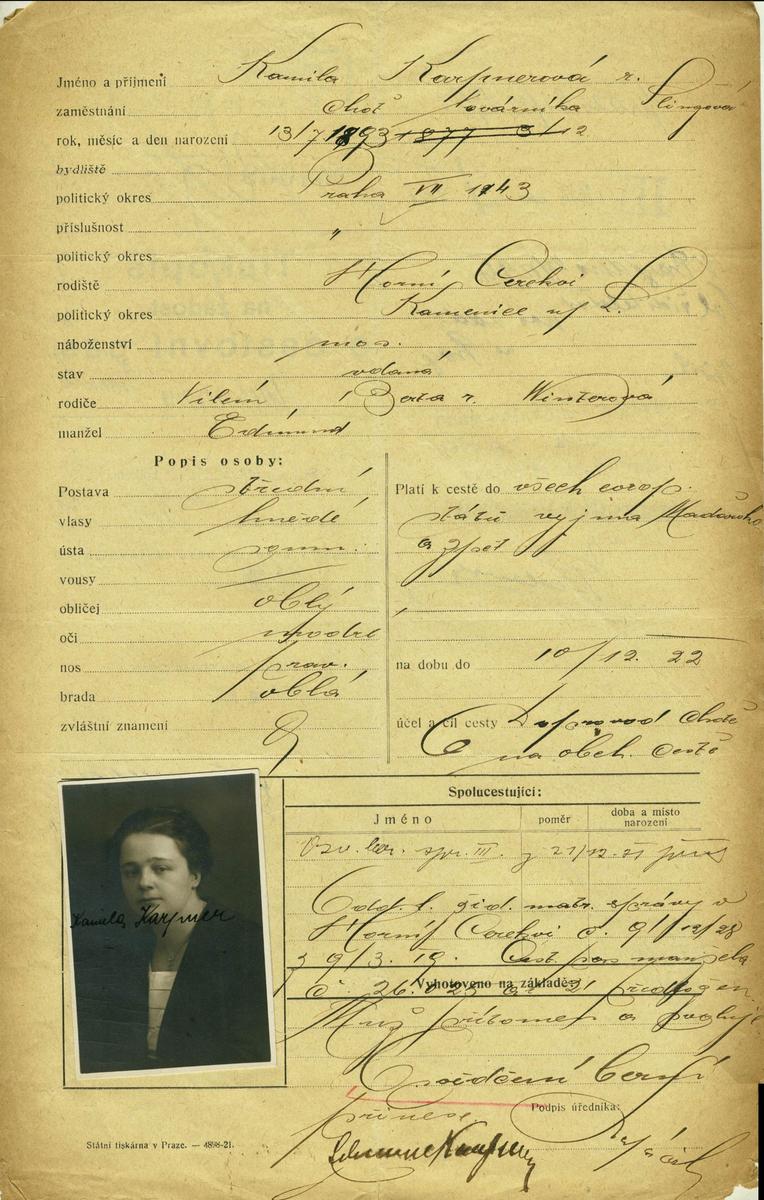 Jméno a příjmení Kamila Karpnerová r.
zaměstnání choť továrníka Šlingová
rok, měsíc a den narození 13/7 1893 1877 3/12
bydliště
politický okres Praha VII 1143
příslušnost "
politický okres
rodiště Horní Cerekvi
politický okres Kamenice n/ L.
náboženství mos.
stav vdaná
rodiče Vilém / Berta r. Winterová
manžel Edmund
Popis osoby:
Postava střední
vlasy hnědé
ústa soum.
vousy
obličej oblý
oči modré
nos prav.
brada oblá
zvláštní znamení
Platí k cestě do všech evrop.
států vyjma Maďarska
a zpět
na dobu do 10/12. 22
účel a cíl cesty Doprovod chotě
na obch. cestě
Spolucestující:
Jméno
poměr
doba a místo narození
Osv. ber. spr. III. z 21/12. 21
Odd l. žid. matr. správy v
Horní Cerekvi č. 91/12/28
z 9/3. 19. Cest. pas manžela
Vyhotoveno na základě:
č. 26.023 předložen.
Muž přítomen a svoluje
Osvědčení berní
přinese.
Podpis úředníka:
Kamila Karpner
Státní tiskárna v Praze. — 4898-21.